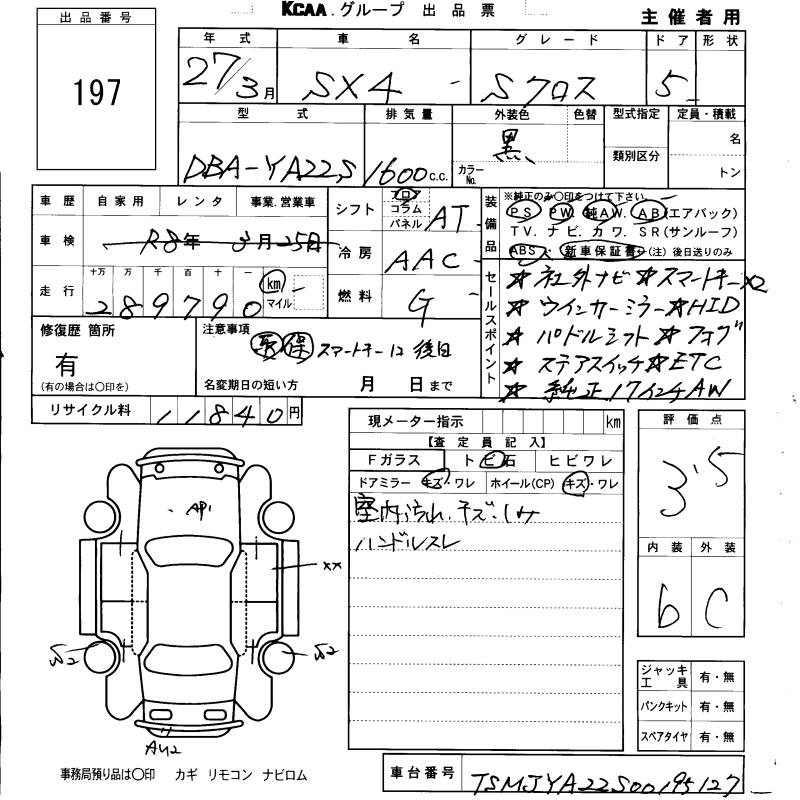 KCAA.グループ 出品票
主催者用
出品番号
197
年式 車名 グレード ドア 形状
27/3月 SX4 Sクロス 5
型式 排気量 外装色 色替 型式指定 定員・積載
DBA-YA22S 1600c.c. 黒 カラーNo. 類別区分 名
トン
車歴 自家用 レンタ 事業.営業車
車検 R8年 3月25日
走行 十万 万 千 百 十 一
289790 km マイル
シフト フロ コラム パネル AT
冷房 AAC
燃料 G
装備品
※純正のみ○印をつけて下さい
PS PW 純AW. AB(エアバック)
TV. ナビ. カワ. SR(サンルーフ)
ABS. 新車保証書(注)後日送りのみ
セールスポイント
★社外ナビ★スマートキーx2
★ウインカーミラー★HID
★パドルシフト★フォグ
★ステアスイッチ★ETC
★純正17インチAW
修復歴 箇所
有
(有の場合は○印を)
注意事項
保 スマートキー1コ 後日
名変期日の短い方 月 日まで
リサイクル料 11840円
現メーター指示 km
【査定員記入】
Fガラス トビ石 ヒビワレ
ドアミラー キズ・ワレ ホイール(CP) キズ・ワレ
室内汚れ.キズ.シミ
ハンドルスレ
評価点
3.5
内装 外装
b C
AP1
XX
S2
S2
AU2
ジャッキ工具 有・無
パンクキット 有・無
スペアタイヤ 有・無
事務局預り品は○印 カギ リモコン ナビロム
車台番号 TSMJYA22S00195127